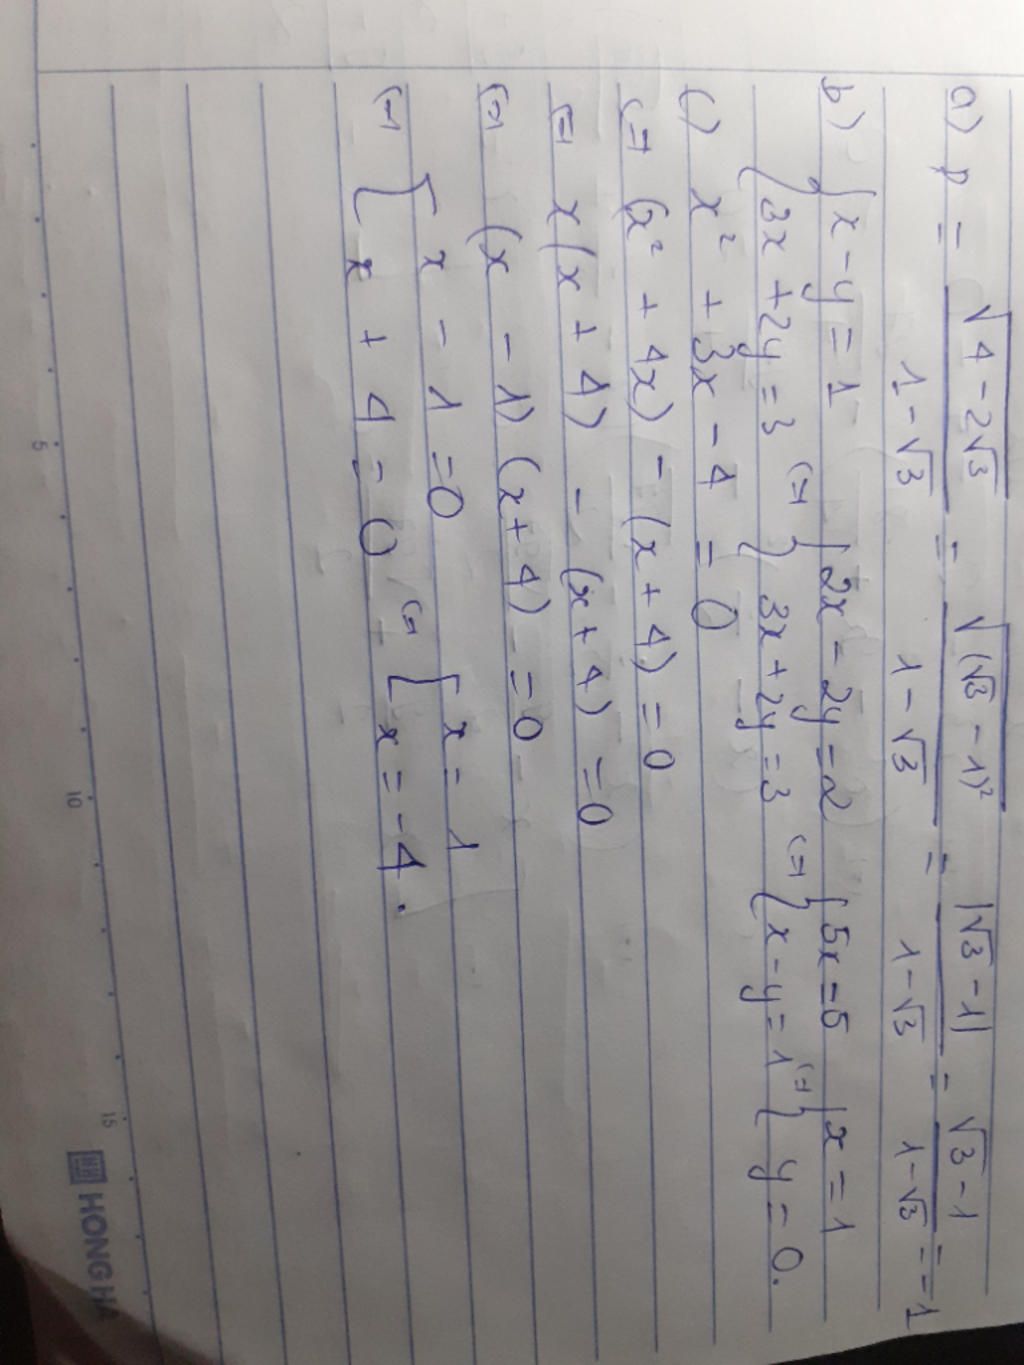 a) P = √(4 - 2√3) / (1 - √3) = √((√3 - 1)²) / (1 - √3) = |√3 - 1| / (1 - √3) = (√3 - 1) / (1 - √3) = -1
b) { x - y = 1 { 2x - 2y = 2 { 5x = 5 { x = 1
{ 3x + 2y = 3 (=) { 3x + 2y = 3 (=) { x - y = 1 (=) { y = 0.
c) x² + 3x - 4 = 0
(=) (x² + 4x) - (x + 4) = 0
(=) x(x + 4) - (x + 4) = 0
(=) (x - 1)(x + 4) = 0
(=) [ x - 1 = 0 (=) [ x = 1
[ x + 4 = 0 [ x = -4.
5 10 15 HONG HA